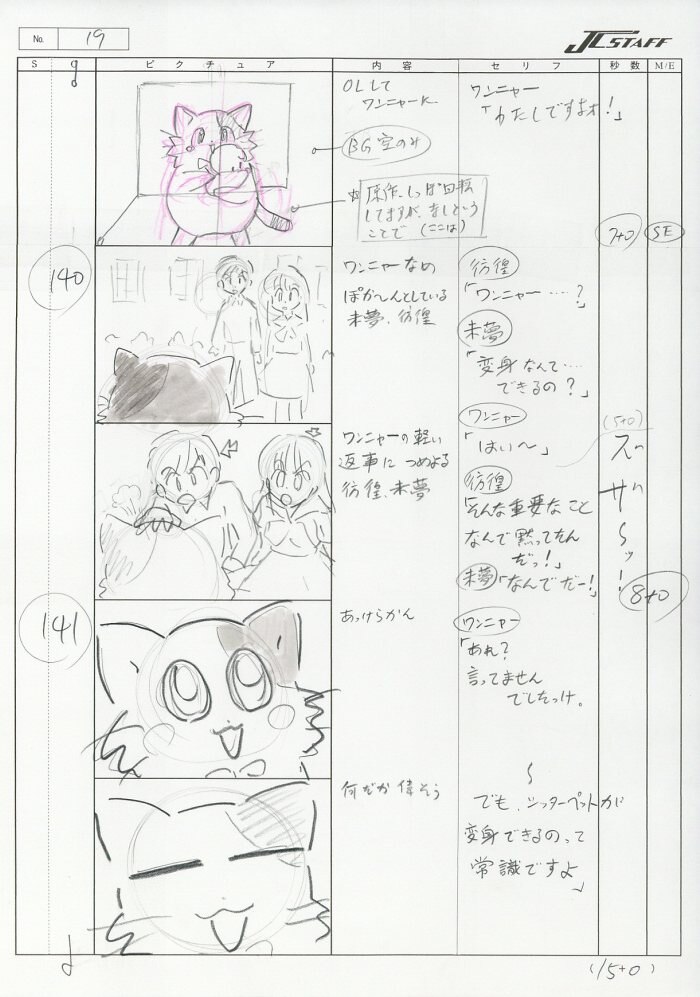 No. 19
JCSTAFF
S
ピクチュア
内容
セリフ
秒数
M/E
OLして
ワンニャーに
BG空のみ
原作、しっぽ回転
してますが、なしという
ことで(ここは)
ワンニャー
「わたしですよォ!」
7+0
SE
140
ワンニャーなめ
ぽか〜んとしている
未夢、彷徨
彷徨
「ワンニャー……?」
未夢
「変身なんて…
できるの?」
ワンニャーの軽い
返事に つめよる
彷徨、未夢
ワンニャー
「はい〜」
彷徨
「そんな重要なこと
なんで黙ってたん
だっ!」
未夢「なんでだー!」
(5+0)
ズザ〜ッ!
8+0
141
あっけらかん
ワンニャー
「あれ?
言ってません
でしたっけ。
何だか偉そう
〜
でも、シッターペットが
変身できるのって
常識ですよ」
(15+0)